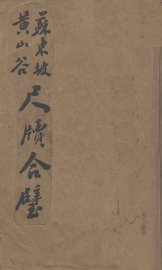 蘇東坡
黃山谷
尺牘合璧